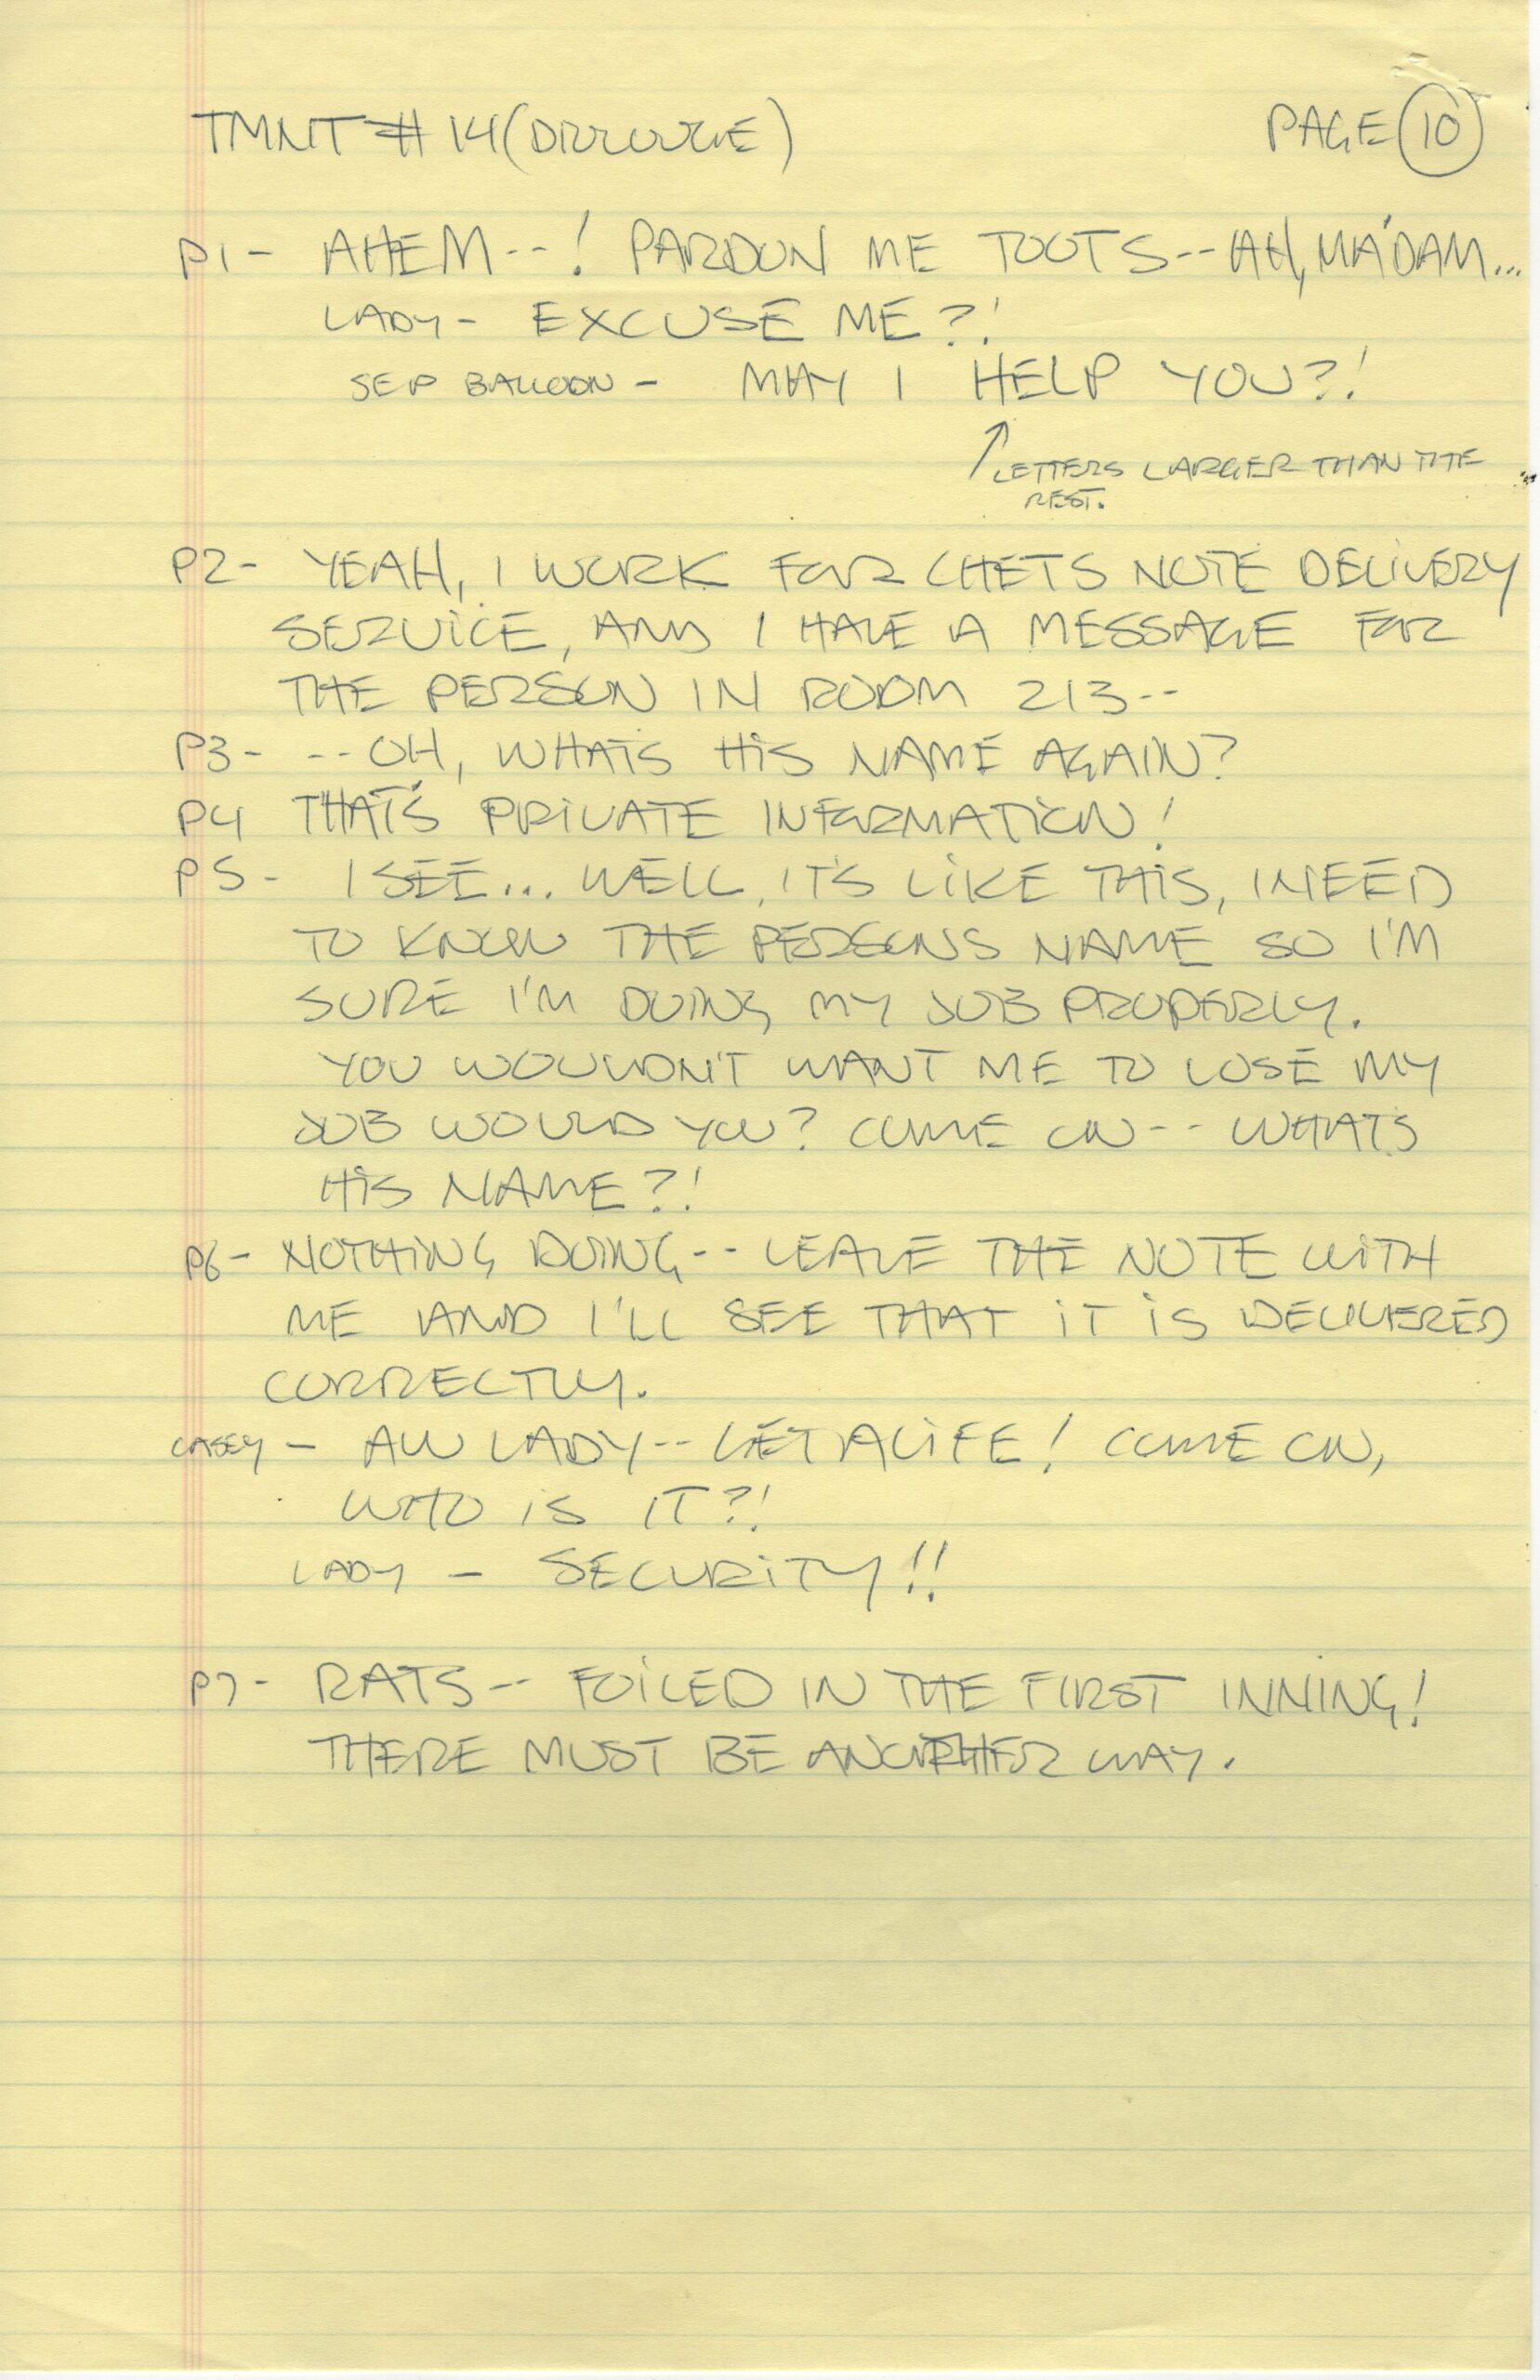 TMNT # 14 (DIALOGUE) PAGE 10
P1 - AHEM--! PARDON ME TOOTS-- AH, MA'DAM...
LADY - EXCUSE ME?!
SEP BALLOON - MAY I HELP YOU?!
LETTERS LARGER THAN THE
REST.
P2- YEAH, I WORK FOR CHETS NOTE DELIVERY
SERVICE, AND I HAVE A MESSAGE FOR
THE PERSON IN ROOM 213--
P3- --OH, WHATS HIS NAME AGAIN?
P4 THAT'S PRIVATE INFORMATION!
P5- I SEE... WELL, IT'S LIKE THIS, I NEED
TO KNOW THE PERSONS NAME SO I'M
SURE I'M DOING MY JOB PROPERLY.
YOU WOULDN'T WANT ME TO LOSE MY
JOB WOULD YOU? COME ON-- WHATS
HIS NAME?!
P6- NOTHING DOING-- LEAVE THE NOTE WITH
ME AND I'LL SEE THAT IT IS DELIVERED
CORRECTLY.
CASEY - AW LADY-- GET A LIFE! COME ON,
WHO IS IT?!
LADY - SECURITY!!
P7- RATS-- FOILED IN THE FIRST INNING!
THERE MUST BE ANOTHER WAY.